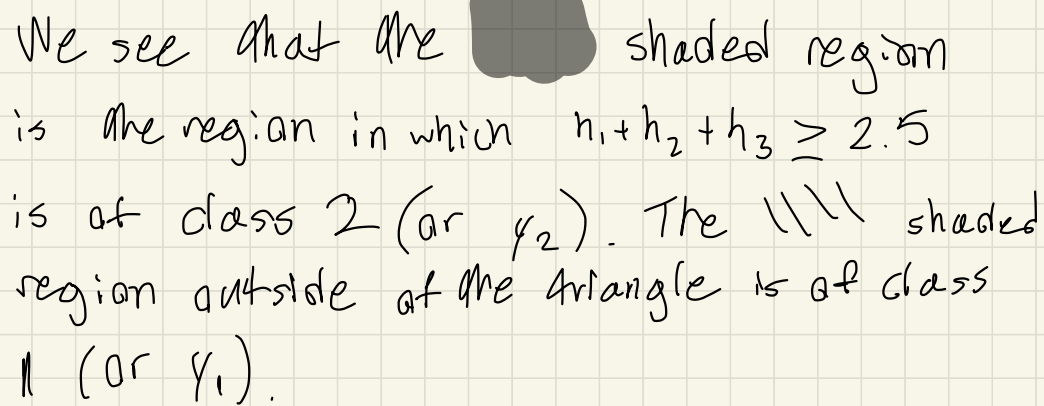 We see that the shaded region
is the region in which h₁ + h₂ + h₃ ≥ 2.5
is of class 2 (or y₂). The \\\\ shaded
region outside of the triangle is of class
1 (or y₁).